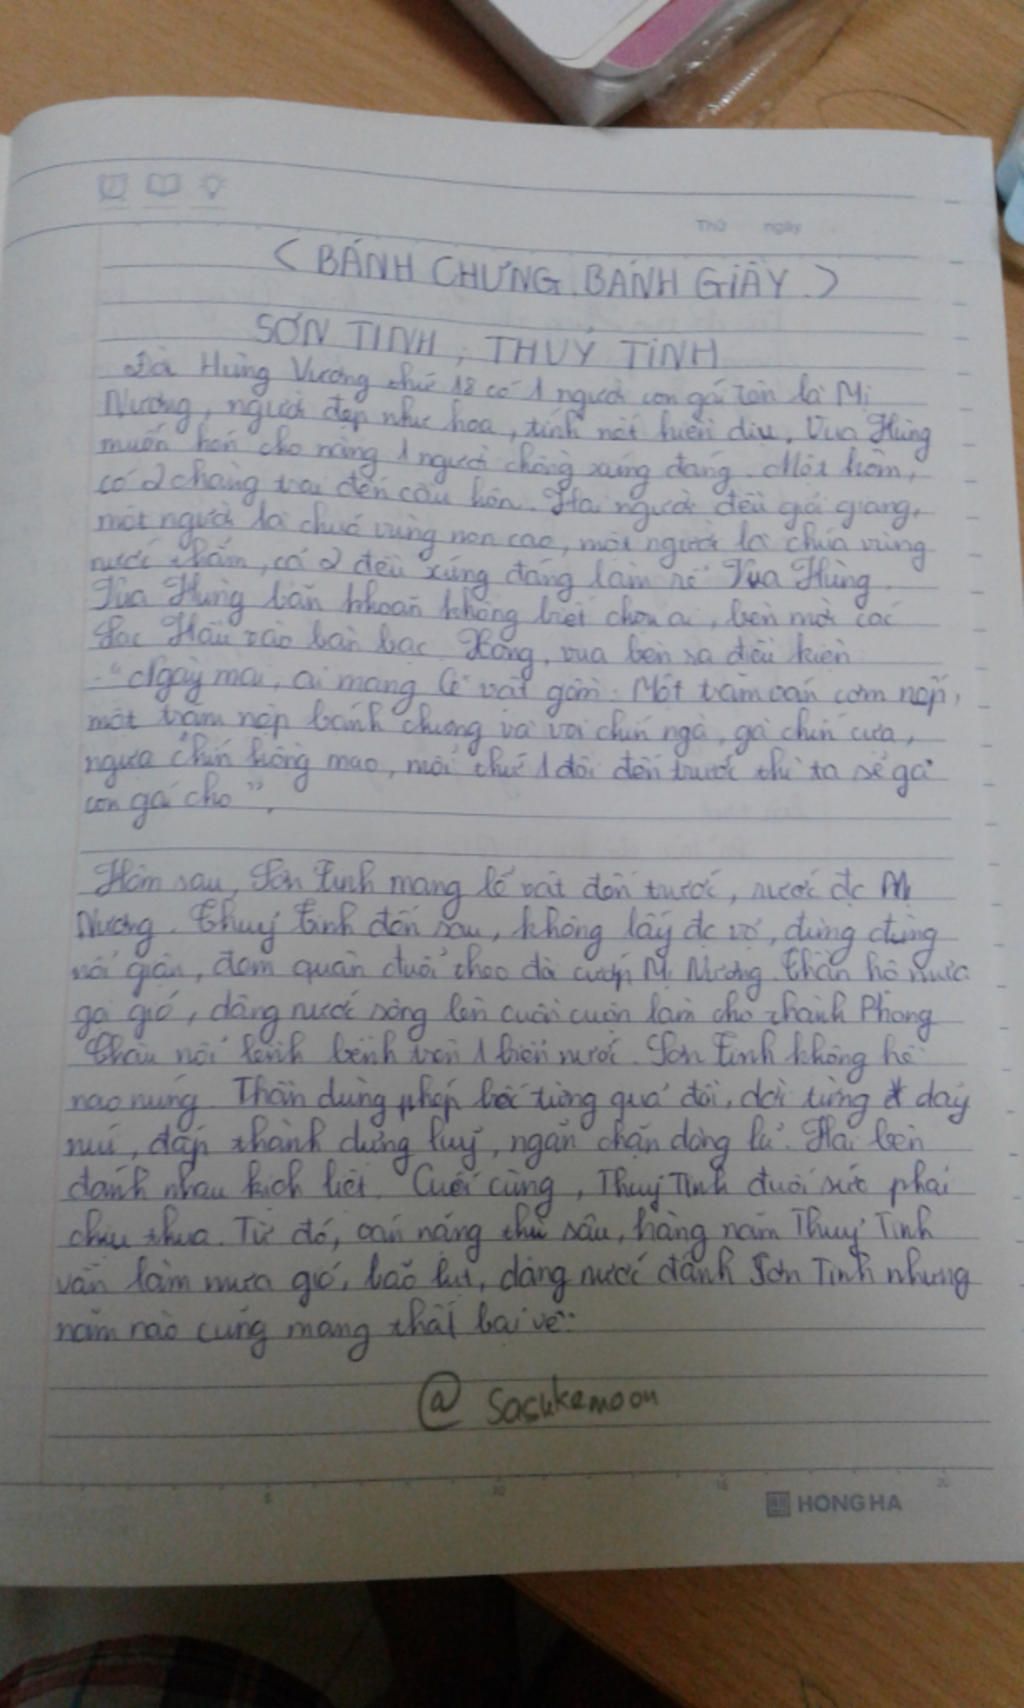 Thứ ngày
< BÁNH CHƯNG, BÁNH GIẦY >
SƠN TINH, THUỶ TINH
Đời Hùng Vương thứ 18 có 1 người con gái tên là Mị
Nương, người đẹp như hoa, tính nết hiền dịu. Vua Hùng
muốn kén cho nàng 1 người chồng xứng đáng. Một hôm,
có 2 chàng trai đến cầu hôn. Hai người đều giỏi giang,
một người là chúa vùng non cao, một người là chúa vùng
nước thẳm, cả 2 đều xứng đáng làm rể Vua Hùng.
Vua Hùng băn khoăn không biết chọn ai, bèn mời các
Lạc Hầu vào bàn bạc. Xong, vua bèn ra điều kiện
- "Ngày mai, ai mang lễ vật gồm: Một trăm ván cơm nếp,
một trăm nệp bánh chưng và voi chín ngà, gà chín cựa,
ngựa chín hồng mao, mỗi thứ 1 đôi đến trước thì ta sẽ gả
con gái cho".
Hôm sau, Sơn Tinh mang lễ vật đến trước, rước đc Mị
Nương. Thuỷ Tinh đến sau, không lấy đc vợ, đùng đùng
nổi giận, đem quân đuổi theo đòi cướp Mị Nương. Thần hô mưa
gọi gió, dâng nước sông lên cuồn cuộn làm cho thành Phong
Châu nổi lềnh bềnh trên 1 biển nước. Sơn Tinh không hề
nao núng. Thần dùng phép bốc từng quả đồi, dời từng dãy
núi, đắp thành dựng luỹ, ngăn chặn dòng lũ. Hai bên
đánh nhau kịch liệt. Cuối cùng, Thuỷ Tinh đuối sức phải
chịu thua. Từ đó, oán nặng thù sâu, hàng năm Thuỷ Tinh
vẫn làm mưa gió, bão lụt, dâng nước đánh Sơn Tinh nhưng
năm nào cũng mang thất bại về.
@ Sasukemoon
5 10 15 20
HONG HA